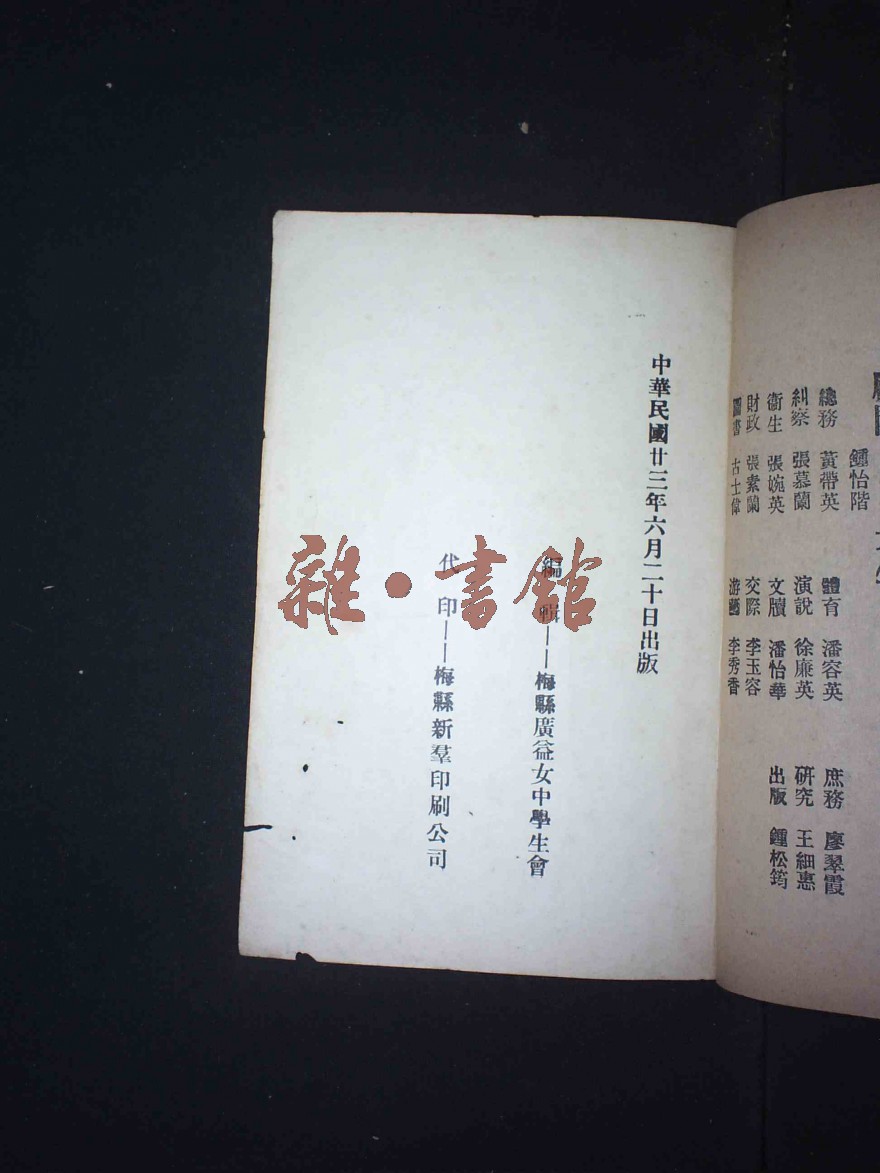 鍾怡階
總務 黃帶英 體育 潘容英 庶務 廖翠霞
糾察 張慕蘭 演說 徐廉英 研究 王細惠
衞生 張婉英 文牘 潘怡華 出版 鍾松筠
財政 張素蘭 交際 李玉容
圖書 古士偉 游藝 李秀香
中華民國廿三年六月二十日出版
編輯——梅縣廣益女中學生會
代印——梅縣新羣印刷公司
雜·書館